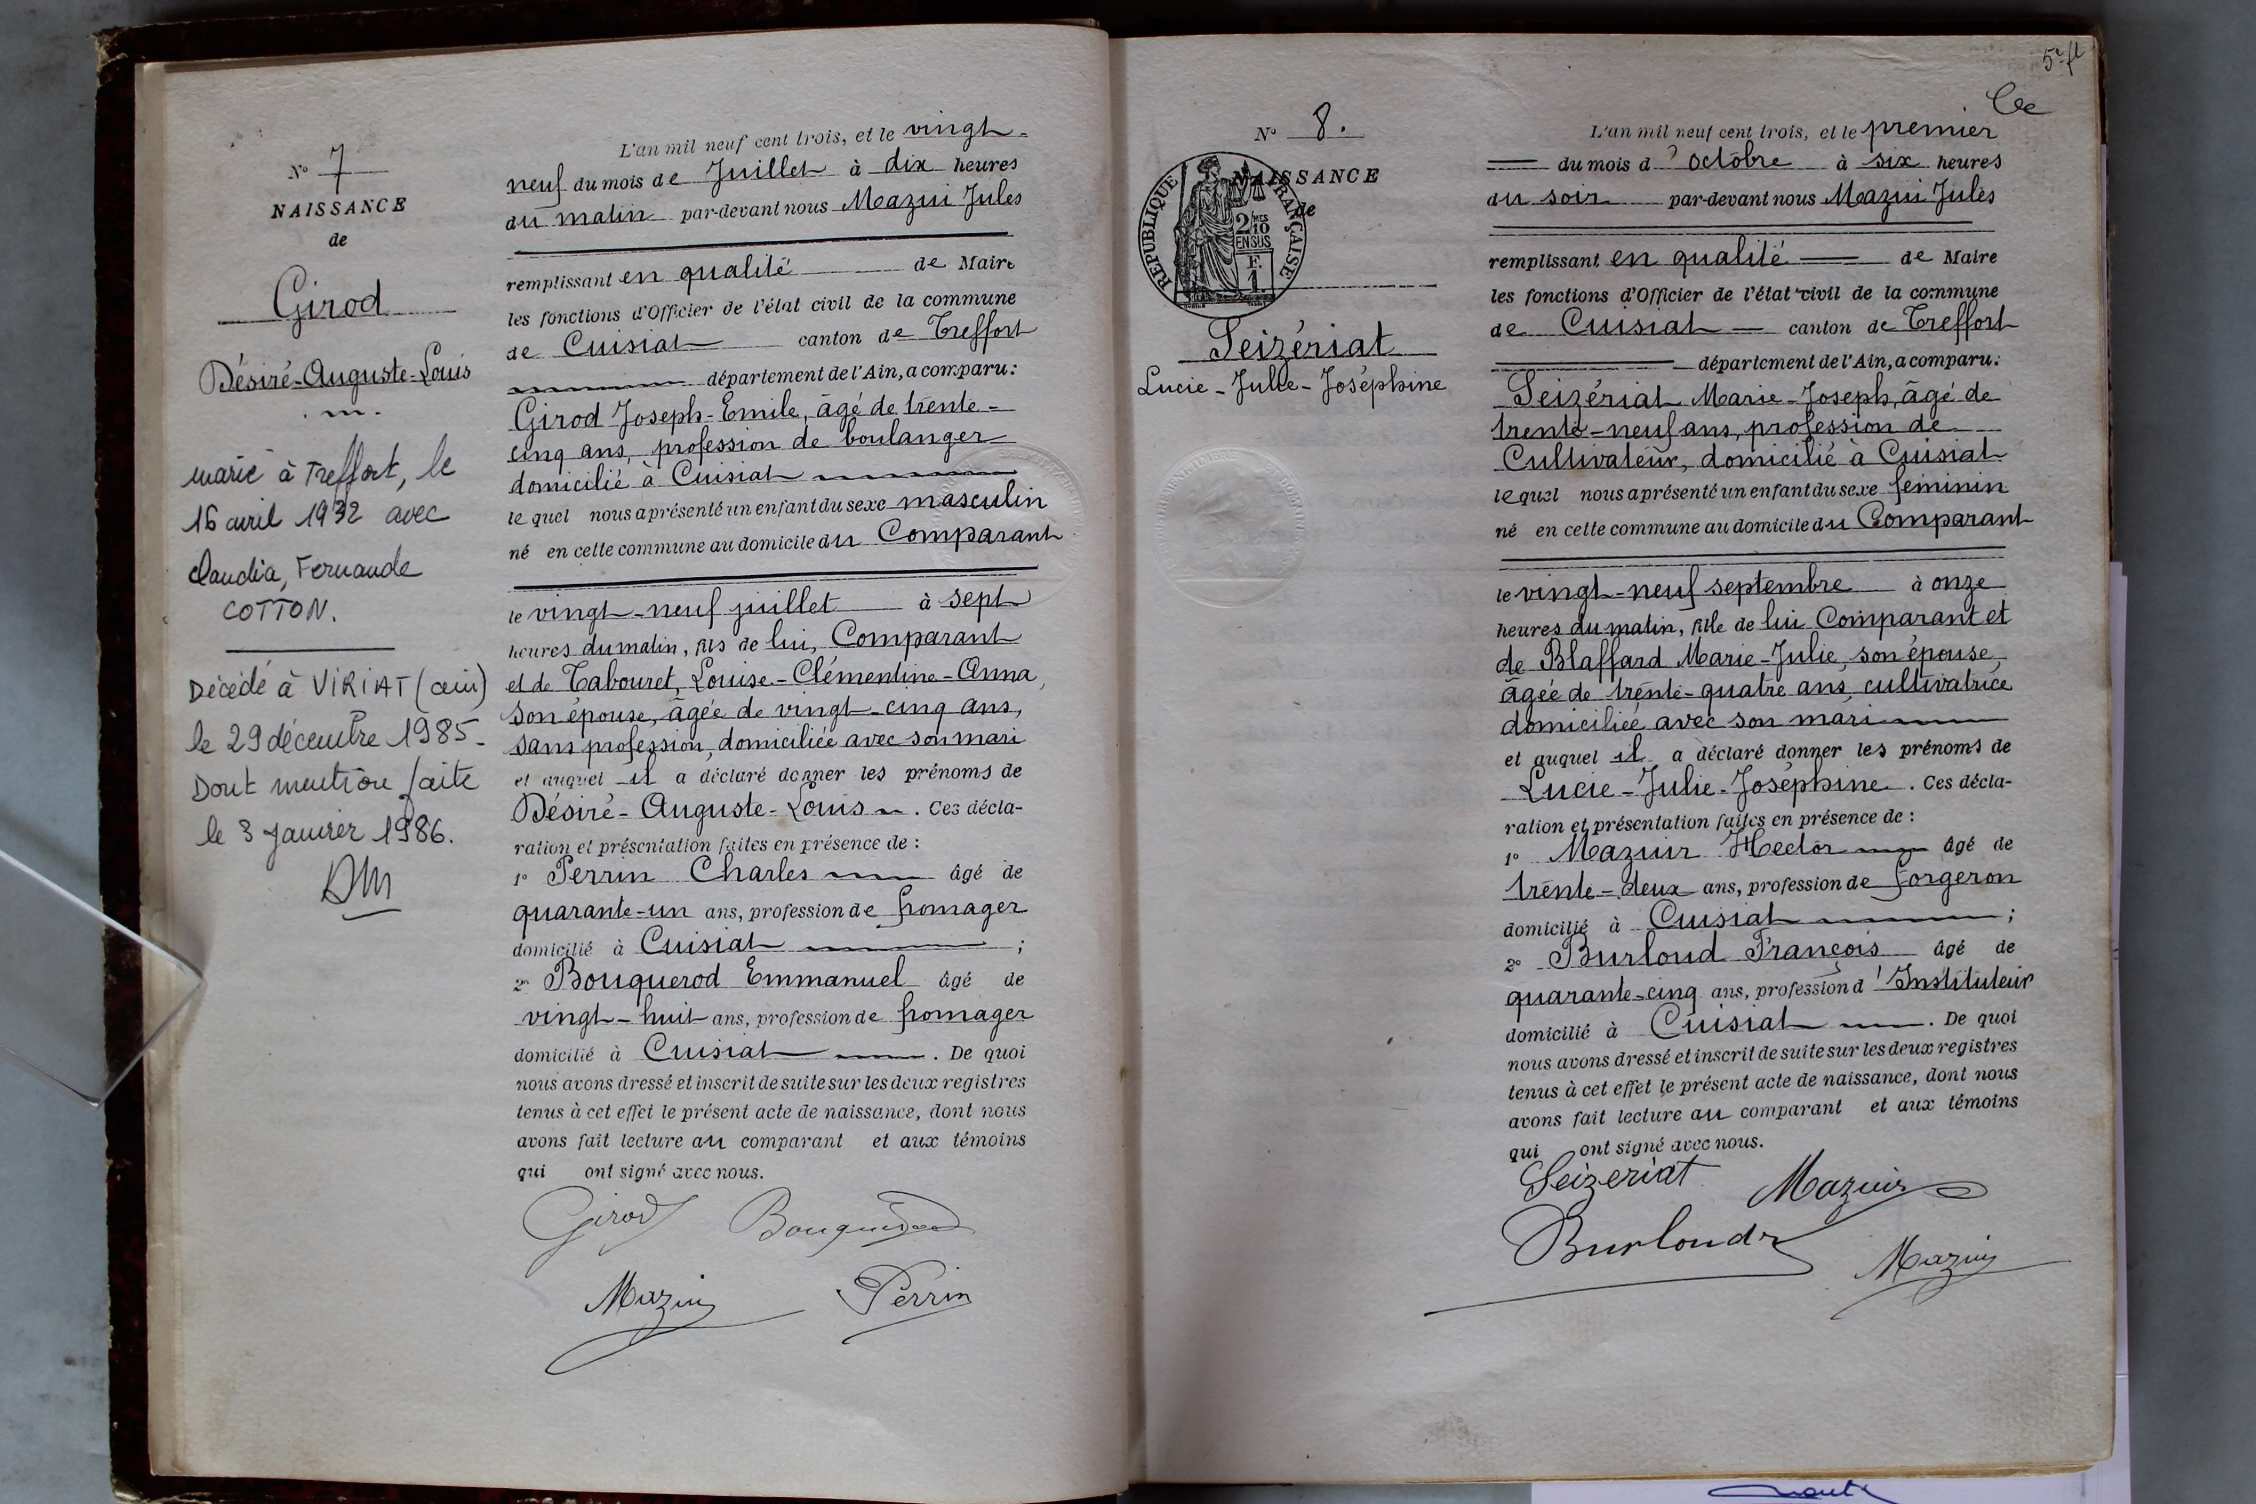 N° 7
NAISSANCE
de
Girod
Désiré-Auguste-Louis
marié à Treffort, le
16 avril 1932 avec
Claudia, Fernande
COTTON.
Décédé à VIRIAT (ain)
le 29 décembre 1985.
Dont mention faite
le 3 janvier 1986.
L'an mil neuf cent trois, et le vingt-
neuf du mois de Juillet à dix heures
du matin par-devant nous Mazui Jules
remplissant en qualité de Maire
les fonctions d'Officier de l'état civil de la commune
de Cuisiat canton de Treffort
département de l'Ain, a comparu:
Girod Joseph-Emile, âgé de trente-
cinq ans, profession de boulanger
domicilié à Cuisiat
lequel nous a présenté un enfant du sexe masculin
né en cette commune au domicile du Comparant
le vingt-neuf juillet à sept
heures du matin, fils de lui, Comparant
et de Tabouret, Louise-Clémentine-Anna,
son épouse, âgée de vingt-cinq ans,
sans profession, domiciliée avec son mari
et auquel il a déclaré donner les prénoms de
Désiré-Auguste-Louis. Ces décla-
ration et présentation faites en présence de :
1° Perrin Charles âgé de
quarante-un ans, profession de fromager
domicilié à Cuisiat ;
2° Bouquerod Emmanuel âgé de
vingt-huit ans, profession de fromager
domicilié à Cuisiat . De quoi
nous avons dressé et inscrit de suite sur les deux registres
tenus à cet effet le présent acte de naissance, dont nous
avons fait lecture au comparant et aux témoins
qui ont signé avec nous.
Girod Bouquerod
Mazui Perrin
5e ft
N° 8.
NAISSANCE
de
RÉPUBLIQUE FRANÇAISE
2/10
EN SUS
F.
1.
Seizériat
Lucie-Julie-Joséphine
L'an mil neuf cent trois, et le premier
du mois d'octobre à six heures
du soir par-devant nous Mazui Jules
remplissant en qualité de Maire
les fonctions d'Officier de l'état civil de la commune
de Cuisiat canton de Treffort
département de l'Ain, a comparu:
Seizériat Marie-Joseph, âgé de
trente-neuf ans, profession de
Cultivateur, domicilié à Cuisiat
lequel nous a présenté un enfant du sexe féminin
né en cette commune au domicile du Comparant
le vingt-neuf septembre à onze
heures du matin, fille de lui Comparant et
de Blaffard Marie-Julie, son épouse,
âgée de trente-quatre ans, cultivatrice
domiciliée avec son mari
et auquel il a déclaré donner les prénoms de
Lucie-Julie-Joséphine. Ces décla-
ration et présentation faites en présence de :
1° Mazuir Hector âgé de
trente-deux ans, profession de forgeron
domicilié à Cuisiat ;
2° Burloud François âgé de
quarante-cinq ans, profession d'Instituteur
domicilié à Cuisiat . De quoi
nous avons dressé et inscrit de suite sur les deux registres
tenus à cet effet le présent acte de naissance, dont nous
avons fait lecture au comparant et aux témoins
qui ont signé avec nous.
Seizeriat Mazuir
Burloud Mazui